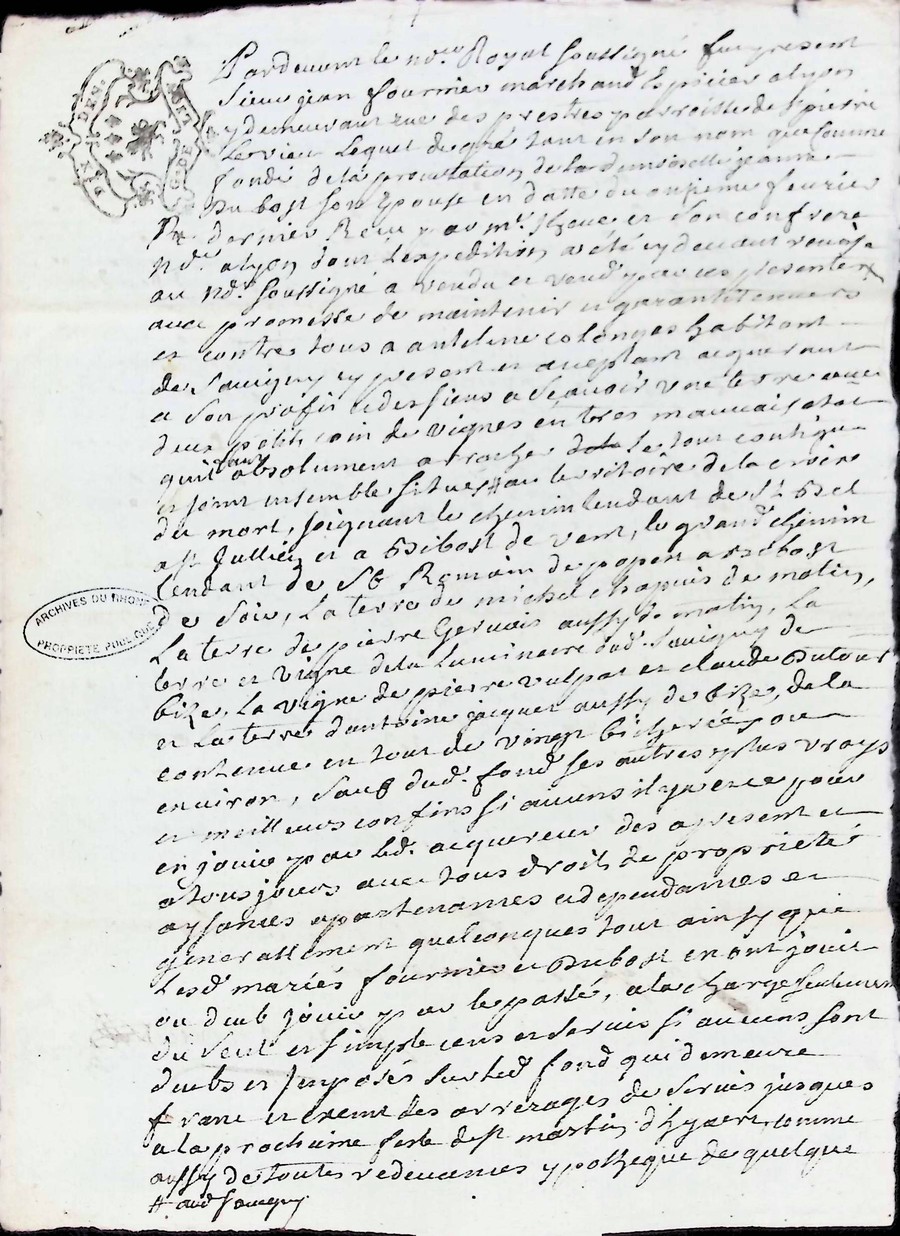 Pardevant le no.re Royal soussigné fut present
Sieur jean fournier marchand Espicier a lyon
y demeurant rue des prestres parroisse de St pierre
le vieu lequel de gré tant en son nom que comme
fondé de la procuration de la demoiselle jeanne
Dubost son Epouse en datte du onzieme feurier
dernier Receu par me et son confrere
Nd.re a lyon dont l'expedition a été cy devant remise
au Nd.re soussigné a vendu et vend par ces presentes
avec promesse de maintenir et garantir envers
et contre tous a anthelme colonges habitant
de Sauigny cy present et aceptant acquerant
a son profit et des siens a scauoir une terre avec
deux petits coin de vignes en tres mauvais etat
quil faut absolument arracher le tout contigu
et joint ensemble situés # au territoire de la croix
du mort, joignant le chemin tendant de St Bel
a st Jullien et a Bibost de vent, le grand chemin
tendant de St Romain de popen a Bibost
de soir, La terre de michel chapuis de matin,
La terre de pierre Gervais aussy de matin, La
terre et vigne de la Luminaire dud. Sauigny de
bize, La vigne de pierre vulpas et claude Dutour
et La terre d'antoine jacquet aussy de bize, de la
contenue en tout de vingt bicherées ou
environ, sauf dud. fond ses autres plus vrays
et meilleurs confins si aucuns il y en a pour
en jouir par led. acquereur des apresent et
a tousjours avec tous droits de proprieté
aysances apartenances et dependances et
generallement quelconques tout ainsy que
Lesd. mariés fournier et Dubost en ont jouit
ou deub jouir par le passé, a la charge seulement
du seul et simple cens et servis si aucuns sont
deubs et Jmposés sur led. fond qui demeure
franc et exemt des arrerages de servis jusques
a la prochaine feste de st martin d'hyvert, comme
aussy de toutes redevances ypotheque de quelque
# aud Sauigny
DEUX
S. DE
ARCHIVES DU RHONE
PROPRIÉTÉ PUBLIQUE